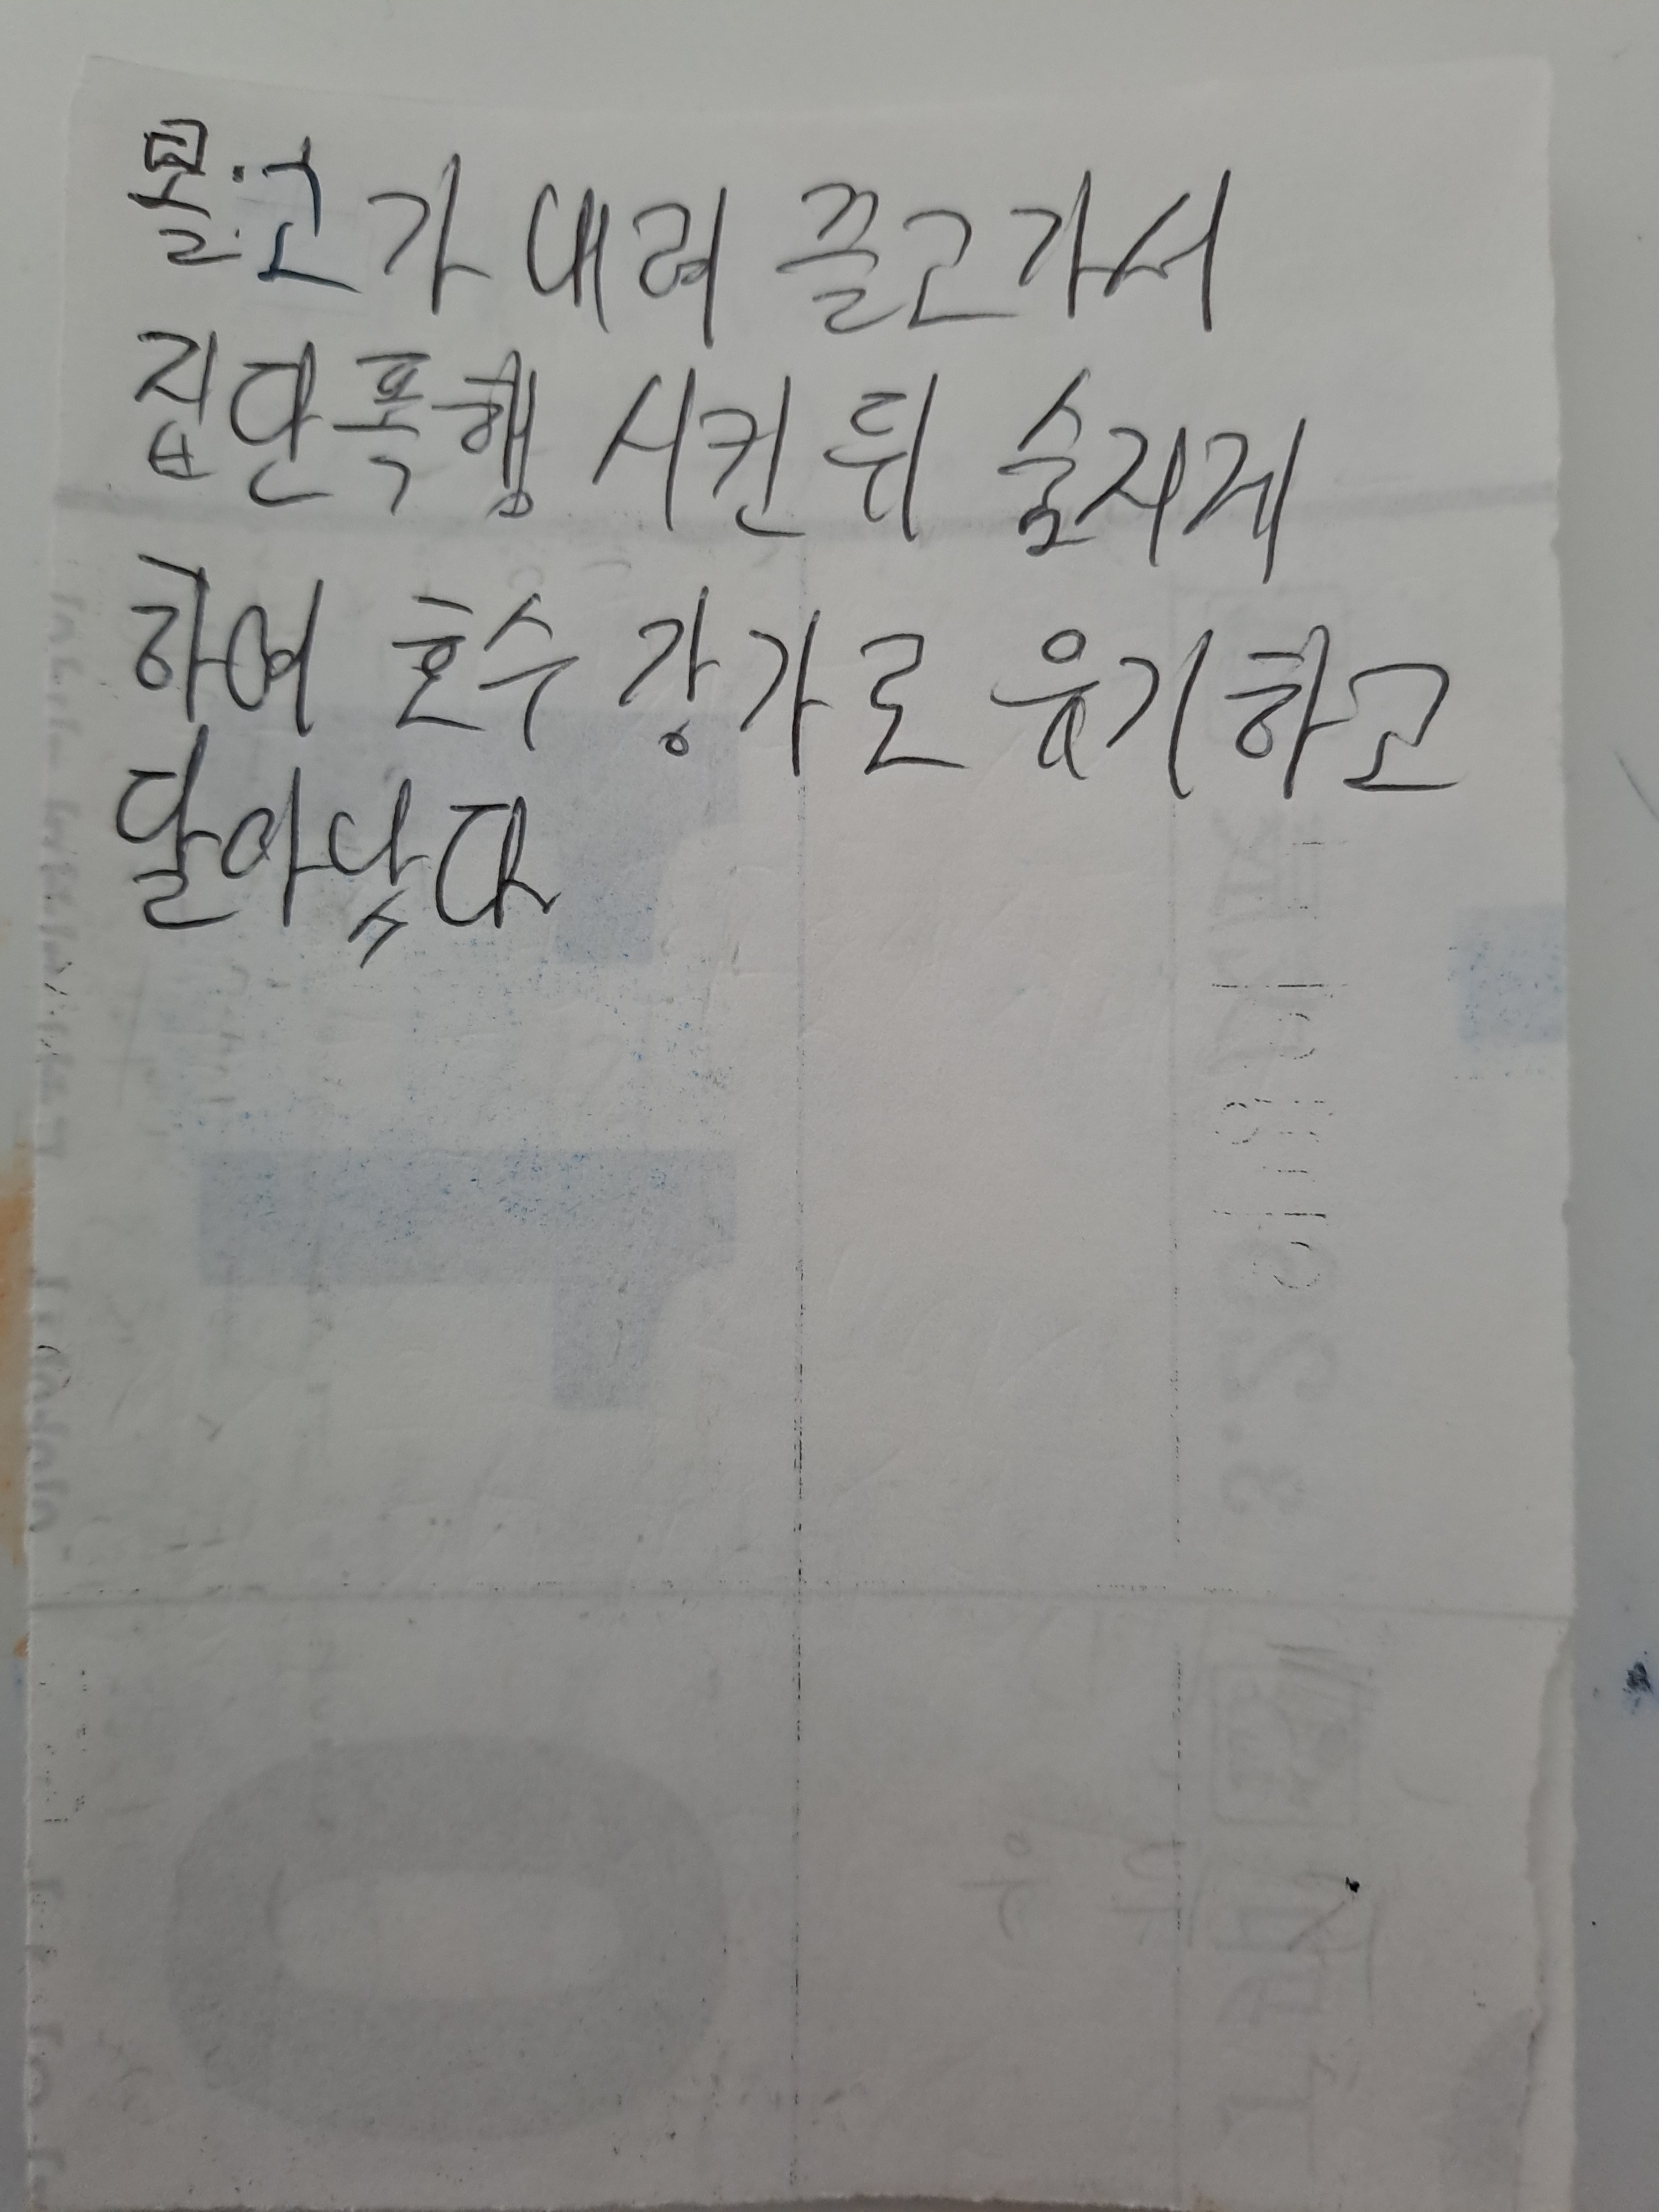 몰고가 내려 끌고가서
집단폭행 시킨뒤 숨지게
하여 호수 강가로 유기하고
달아낫다